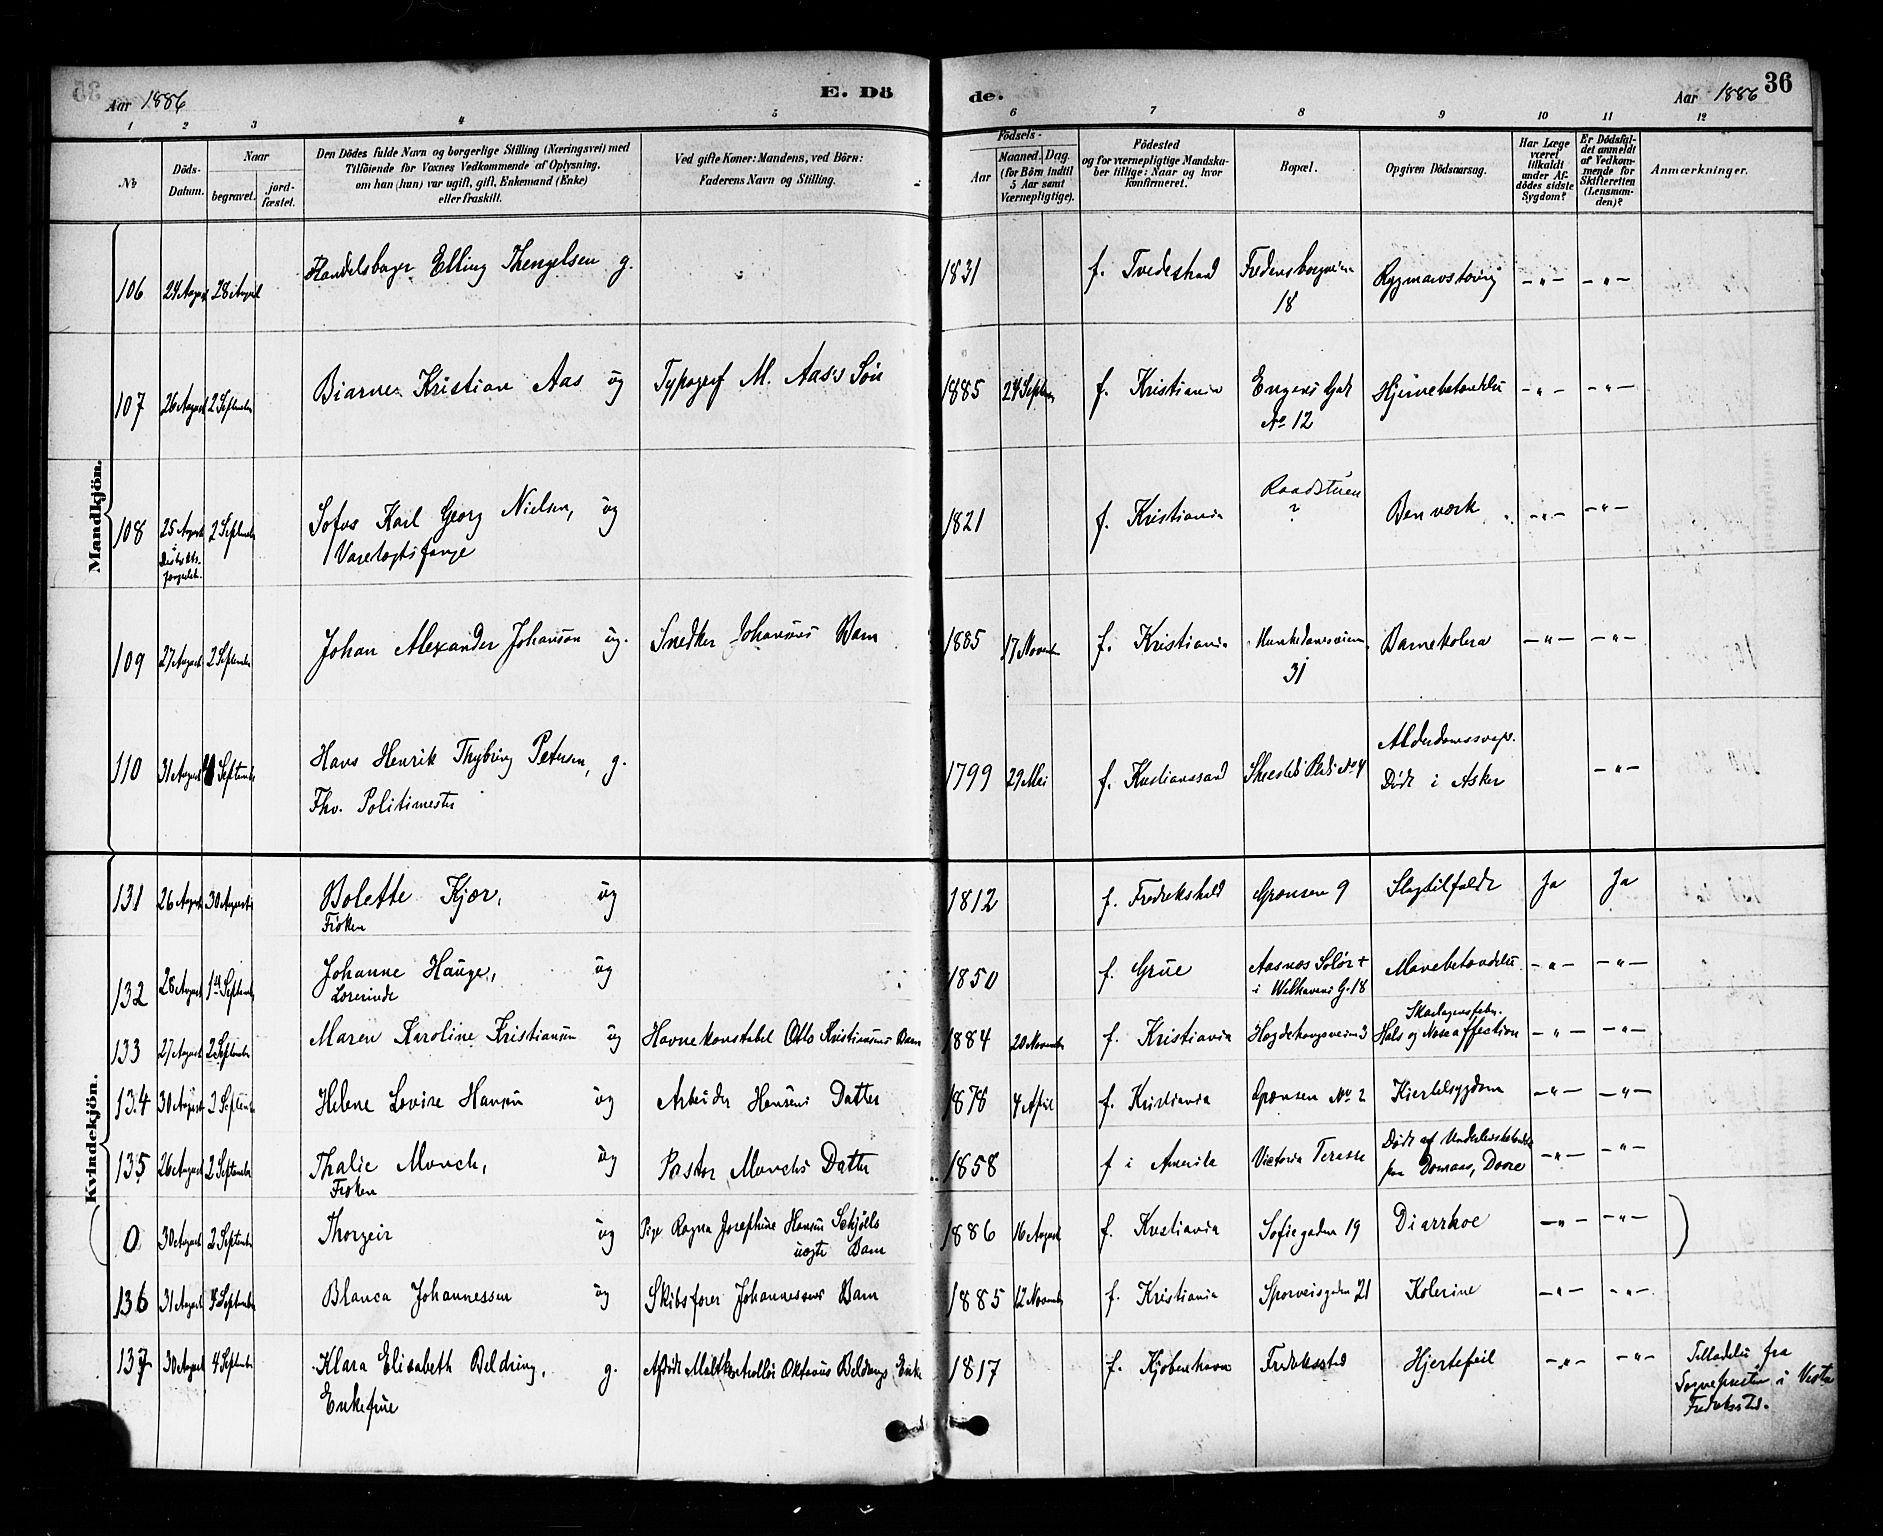 35
Aar 1886
E. Dö
de.
Aar 1886
36
1 2 3 4 5 6 7 8 9 10 11 12
№
Döds-
Datum.
Naar
begravet.
jord-
fæstet.
Den Dødes fulde Navn og borgerlige Stilling (Næringsvei) med
Tilföiende för Voxnes Vedkommende af Oplysning.
om han (hun) var ugift, gift, Enkemand (Enke)
eller fraskilt.
Ved gifte Koner: Mandens, ved Börn:
Faderens Navn og Stilling.
Födsels-
Aar
Maaned. Dag.
(for Börn indtil
5 Aar samt
Værnepligtige).
Födested
og for værnepligtige Mandska-
ber tillige: Naar og hvor
konfirmeret.
Bopæl.
Opgiven Dödsaarsag.
Har Læge
været
tilkaldt
under Af-
dödes sidste
Sygdom?
Er Dødsfal-
det anmeldt
af Vedkom-
mende for
Skifteretten
(Lensman-
den)?
Anmærkninger.
Mandkjön.
106 24 August 28 August Elling Thengelsen g. 1831 f. Tvedestrand Fredensborgveien
18
Rygmarvstæring —„— —„—
107 26 August 2 September Biarne Kristian Aas ug Typograf M. Aas's Sön 1885 24 Septbr f. Kristiania Engens Gade
No 12
Hjernebetændelse —„— —„—
108 25 August
2 September Sofus Karl Georg Nielsen, ug
Varetægtsfange
1821 f. Kristiania Raadstuen
?
Benværk —„— —„—
109 27 August 2 September Johan Alexander Johansen ug. Snedker Johansens Barn 1885 17 Novembr f. Kristiania Munkedamsveien
31
Barnekolera —„— —„—
110 31 August September Hans Henrik Thybring Petersen, g.
Fhv. Politimester
1799 29 Mai f. Kristianssand No 4 Alderdomssvagh.
Död i Asker
—„—
Kvindekjön.
131 26 August 30 August Bolette Kjær, ug
Fröken
1812 f. Fredrikshald Grænsen 9 Slagtilfælde Ja Ja
132 28 August 1st September Johanne Hauge, ug
Lærerinde
1850 f. Grue Aasnæs Solör +
i Welhavens G. 18
Mavebetændelse —„— —„—
133 27 August 2 September Maren Karoline Kristiansen ug Havnekonstabel Otto Kristiansens Barn 1884 20 November f. Kristiania Hægdehaugsveien 3 Skarlagensfeber.
Hals og Næseaffection
—„— —„—
134 30 August 2 September Helene Lovise Hansen ug Arbeider Hansens Datter 1878 4 April f. Kristiania Grænsen No 2 Kjertelsygdom —„— —„—
135 26 August 2 September Thalie Munch, ug
Fröken
Pastor Munchs Datter 1858 f i Amerika Victoria Terasse Död af Underlivsbetændelse
paa Domaas, Dovre
—„— —„—
0 30 August 2 September Thorgeir ug Pige Ragna Josephine Hansen Schjølls
uægte Barn
1886 16 August f. Kristiania Sofiegaden 19 Diarrhoe —„— —„—
136 31 August September Blanca Johannessen ug Skibsförer Johannessens Barn 1885 12 November f. Kristiania Sporveisgaden 21 Kolerine —„— —„—
137 30 August 4 September Klara Elisabeth Beldring, g.
Enkefrue
Afdöde Maltkontrollör Oktavius Beldrings Enke 1817 f. Kjöbenhavn Fredriksstad Hjertefeil —„— —„— Tilladelse fra
Sognepresten i Vestre
Fredriksstad.